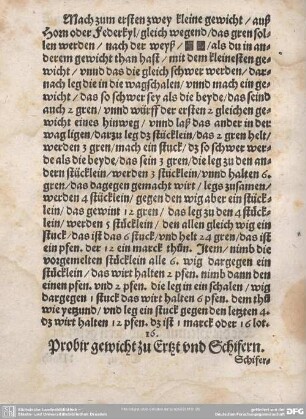 Mach zum ersten zwey kleine gewicht / auß
Horn oder Federkyl / gleich wegend / das gren sol-
len werden / nach der weyß / als du in an-
derem gewicht than hast / mit dem kleinesten ge-
wicht / vnnd das die gleich schwer werden / dar-
nach leg die in die wagschalen / vnnd mach ein ge-
wicht / das so schwer sey als die beyde / das seind
auch 2 gren / vnd würff der ersten 2 gleichen ge-
wicht eins hinweg / vnnd laß das ander in der
wag ligen / darzu leg dz stücklein / das 2 gren helt /
werden 3 gren / mach ein stuck / dz so schwer wer-
de als die beyde / das sein 3 gren / die leg zu den an-
dern stücklein / werden 3 stücklein / vnnd halten 6.
gren / das dagegen gemacht wirt / legs zusamen /
werden 4 stücklein / gegen den wig aber ein stück-
lein / das gewint 12 gren / das leg zu den 4 stück-
lein / werden 5 stücklein / den allen gleich wig ein
stuck / das ist das 6 stuck / vnd helt 24 gren / das ist
ein pfen. der 12 ein marck thün. Item / nimb die
vorgemelten stücklein alle 6. wig dargegen ein
stücklein / das wirt halten 2 pfen. nimb dann den
einen pfen. vnd 2 pfen. die leg in ein schalen / wig
dargegen 1 stuck das wirt halten 6 pfen. dem thü
wie yetzund / vnd leg ein stuck gegen den letzten 4
dz wirt halten 12 pfen. dz ist 1 marck oder 16 lot.
16.
Probir gewicht zu Ertzt vnd Schifern.
Schifer-